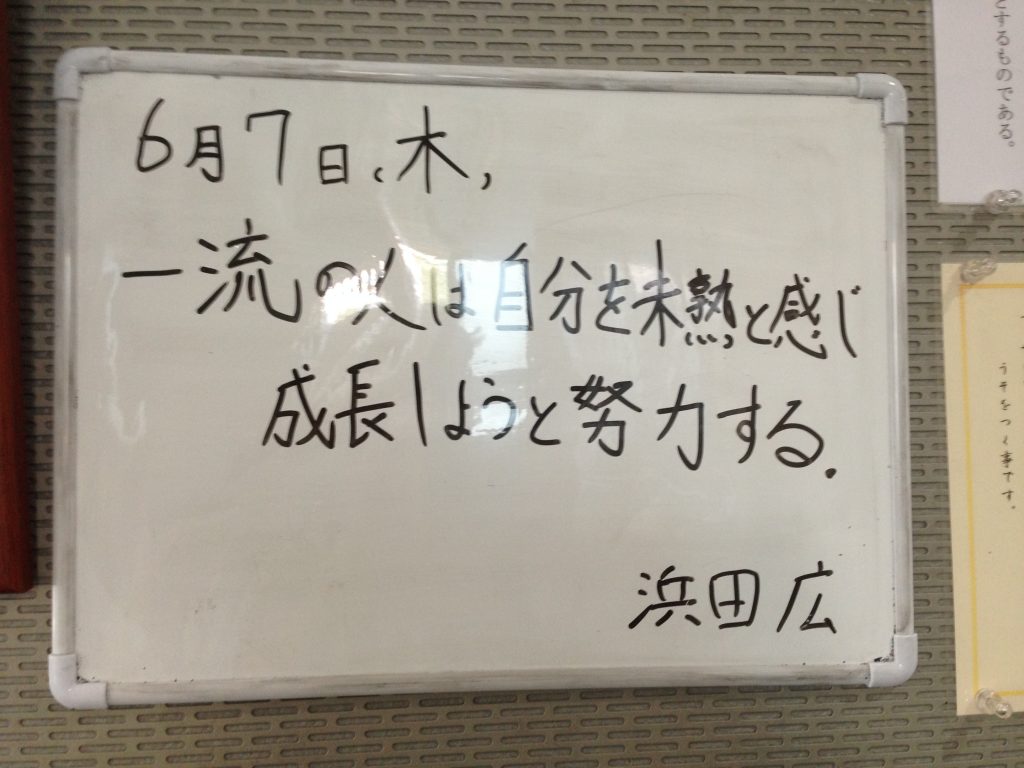 6月7日、木,
一流の人は自分を未熟と感じ
成長しようと努力する.
浜田広
とするものである。
うそをつく事です。